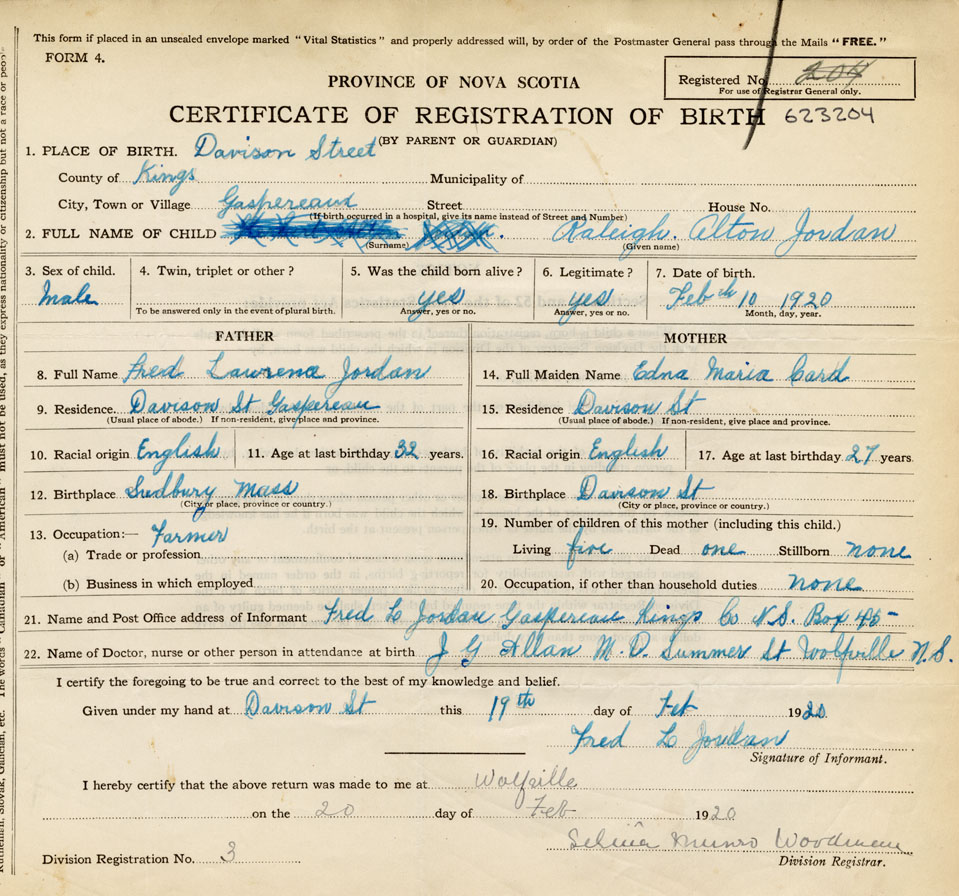 This form if placed in an unsealed envelope marked "Vital Statistics" and properly addressed will, by order of the Postmaster General pass through the Mails "FREE."
FORM 4.
Registered No. 204
For use of Registrar General only.
PROVINCE OF NOVA SCOTIA
CERTIFICATE OF REGISTRATION OF BIRTH 623204
(BY PARENT OR GUARDIAN)
1. PLACE OF BIRTH. Davison Street
County of Kings Municipality of
City, Town or Village Gaspereaux Street House No.
(If birth occurred in a hospital, give its name instead of Street and Number)
2. FULL NAME OF CHILD Raleigh. Alton Jordan
(Surname) (Given name)
3. Sex of child. 4. Twin, triplet or other? 5. Was the child born alive? 6. Legitimate? 7. Date of birth.
Male yes yes Feb 10 1920
To be answered only in the event of plural birth. Answer, yes or no. Answer, yes or no. Month, day, year.
FATHER MOTHER
8. Full Name Fred Laurena Jordan 14. Full Maiden Name Edna Maria Card
9. Residence. Davison St Gaspereau 15. Residence Davison St
(Usual place of abode.) If non-resident, give place and province. (Usual place of abode.) If non-resident, give place and province.
10. Racial origin English 11. Age at last birthday 32 years. 16. Racial origin English 17. Age at last birthday 27 years.
12. Birthplace Sudbury Mass 18. Birthplace Davison St
(City or place, province or country.) (City or place, province or country.)
13. Occupation:— Farmer 19. Number of children of this mother (including this child.)
(a) Trade or profession Living five Dead one Stillborn none
(b) Business in which employed 20. Occupation, if other than household duties none
21. Name and Post Office address of Informant Fred L Jordan Gaspereau Kings Co N.S. Box 45
22. Name of Doctor, nurse or other person in attendance at birth J G Allan M.D. Summer St Wolfville N.S.
I certify the foregoing to be true and correct to the best of my knowledge and belief.
Given under my hand at Davison St this 19th day of Feb 1920
Fred L Jordan
Signature of Informant.
I hereby certify that the above return was made to me at Wolfville
on the 20 day of Feb 1920
Munro Woodman
Division Registration No. 3 Division Registrar.